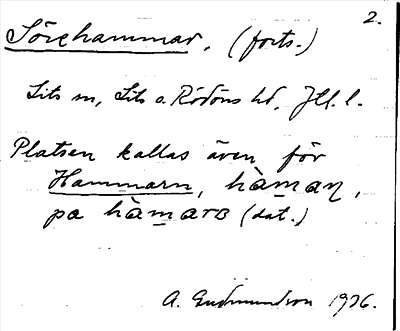 2.
Sörehammar, (forts.)
Lits sn, Lits o. Rödöns hd, Jtl. l.
Platsen kallas även för
Hammarn, hàman,
pa hàmarɒ (dat.)
A. Gudmundson 1926.